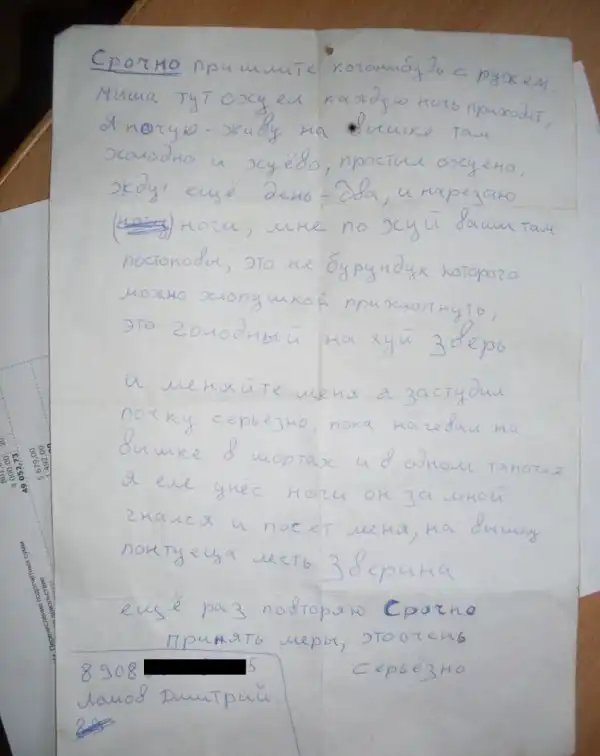 Срочно пришлите когонибудь с ружём.
Миша тут охуел каждую ночь приходит,
я ночую-живу на вышке там
холодно и хуёво, простыл охуено,
жду ещё день-два, и нарезаю
ноги, мне по хуй ваши там
постоновы, это не бурундук которого
можно хлопушкой прихлопнуть,
это голодный на хуй зверь
и меняйте меня я застудил
почку серьёзно, пока начевал на
вышке в шортах и в одном тапочке
я еле унёс ноги он за мной
гнался и пасёт меня, на вышку
зверина
ещё раз повторяю Срочно
принять меры, это очень
серьёзно
8908 5
Ломов Дмитрий
49 052,73
5 679,09